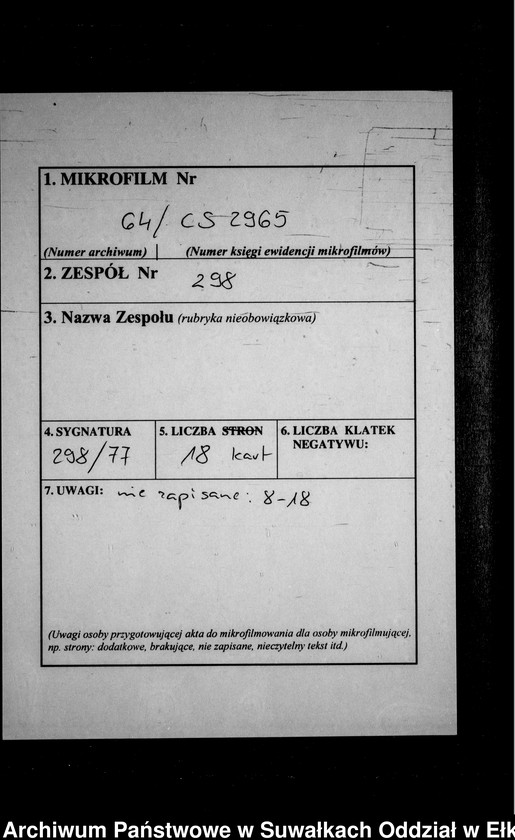 1. MIKROFILM Nr
64/ CS 2965
(Numer archiwum) (Numer księgi ewidencji mikrofilmów)
2. ZESPÓŁ Nr 298
3. Nazwa Zespołu (rubryka nieobowiązkowa)
4. SYGNATURA
298/77
5. LICZBA STRON
18 kart
6. LICZBA KLATEK
NEGATYWU:
7. UWAGI: nie zapisane: 8-18
(Uwagi osoby przygotowującej akta do mikrofilmowania dla osoby mikrofilmującej,
np. strony: dodatkowe, brakujące, nie zapisane, nieczytelny tekst itd.)
Archiwum Państwowe w Suwałkach Oddział w Ełk